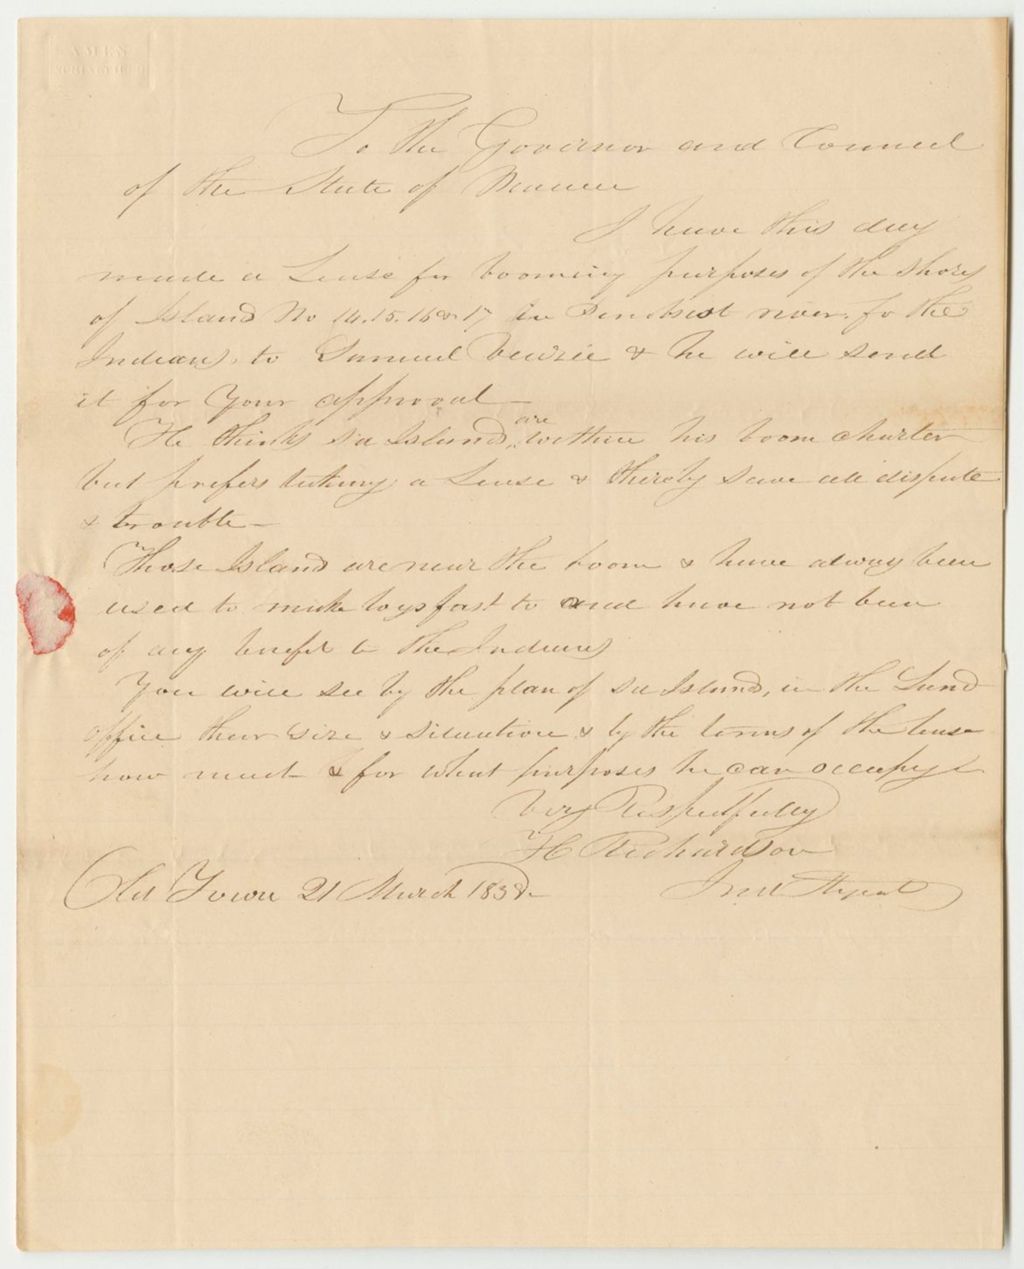 To the Governor and Council
of the State of Maine
I have this day
made a Lease for booming purposes of the shores
of Island No 14. 15. 16 & 17 in Penobscot river. fo the
Indians, to Samuel & he will send
it for Your approval
He thinks sd Islands, are within his boom charter
but prefers taking a Lease & thereby save all dispute
& trouble –
Those Island are near the boom & have alway been
used to make logs fast to and have not been
of any benefit to the Indians
You will see by the plan of sd Island, in the Land
office their size & situation & by the terms of the lease
how much & for what purposes he can occupy
Very Respectfully
H Richardson
Ind Agent
Old Town 21 March 1838